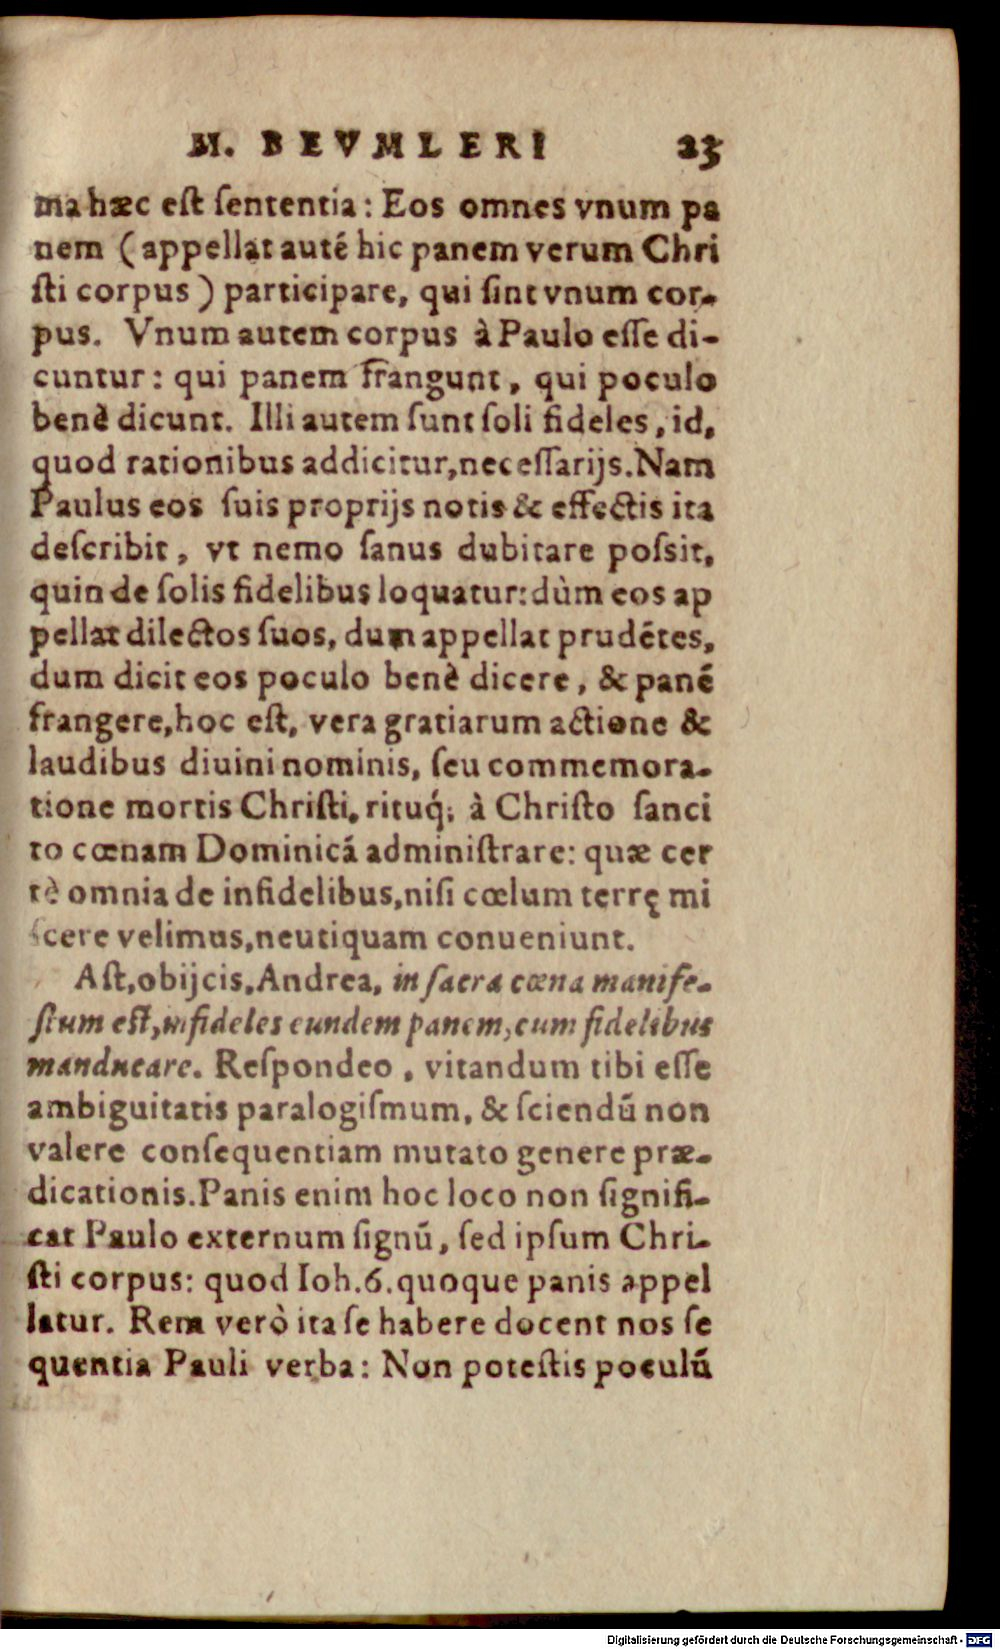 M. BEVMLERI 23
ma hæc est ſententia: Eos omnes vnum pa
nem (appellat autẽ hic panem verum Chri
ſti corpus) participare, qui ſint vnum cor-
pus. Vnum autem corpus à Paulo eſſe di-
cuntur: qui panem frangunt, qui poculo
benè dicunt. Illi autem ſunt ſoli fideles, id,
quod rationibus addicitur, neceſſarijs. Nam
Paulus eos ſuis proprijs notis & effectis ita
deſcribit, vt nemo ſanus dubitare poſsit,
quin de ſolis fidelibus loquatur: dùm eos ap
pellat dilectos ſuos, dum appellat prudẽtes,
dum dicit eos poculo benè dicere, & panẽ
frangere, hoc eſt, vera gratiarum actione &
laudibus diuini nominis, ſeu commemora-
tione mortis Chriſti, rituq́; à Chriſto ſanci
to cœnam Dominicã adminiſtrare: quæ cer
tè omnia de infidelibus, niſi cœlum terrę mi
ſcere velimus, neutiquam conueniunt.
Aſt, obijcis, Andrea, in ſacra cœna manife-
ſtum eſt, infideles eundem panem, cum fidelibus
manducare. Reſpondeo, vitandum tibi eſſe
ambiguitatis paralogiſmum, & ſciendũ non
valere conſequentiam mutato genere præ-
dicationis. Panis enim hoc loco non ſignifi-
cat Paulo externum ſignũ, ſed ipſum Chri-
ſti corpus: quod Ioh. 6. quoque panis appel
latur. Rem verò ita ſe habere docent nos ſe
quentia Pauli verba: Non poteſtis poculũ
Digitalisierung gefördert durch die Deutsche Forschungsgemeinschaft - DFG